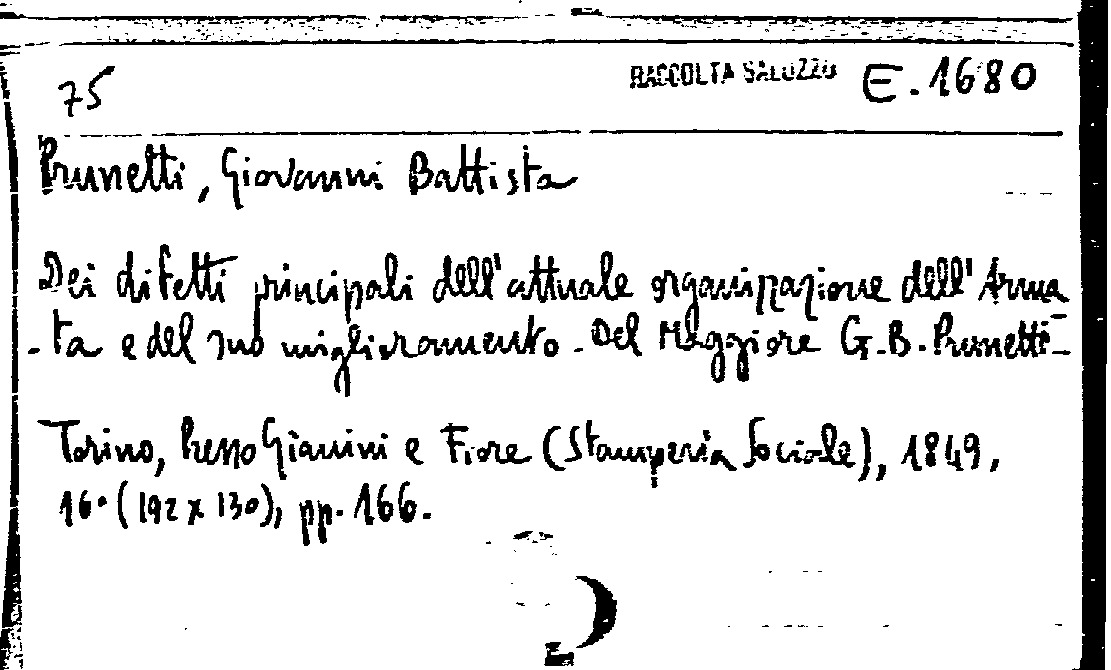 75 RACCOLTA SALUZZO E.1680
Prunetti, Giovanni Battista
Dei difetti principali dell'attuale organizzazione dell'Arma
-ta e del suo miglioramento. Del Maggiore G.B. Prunetti-
Torino, Presso Gianini e Fiore (Stamperia Sociale), 1849,
16° (192 x 130), pp. 166.